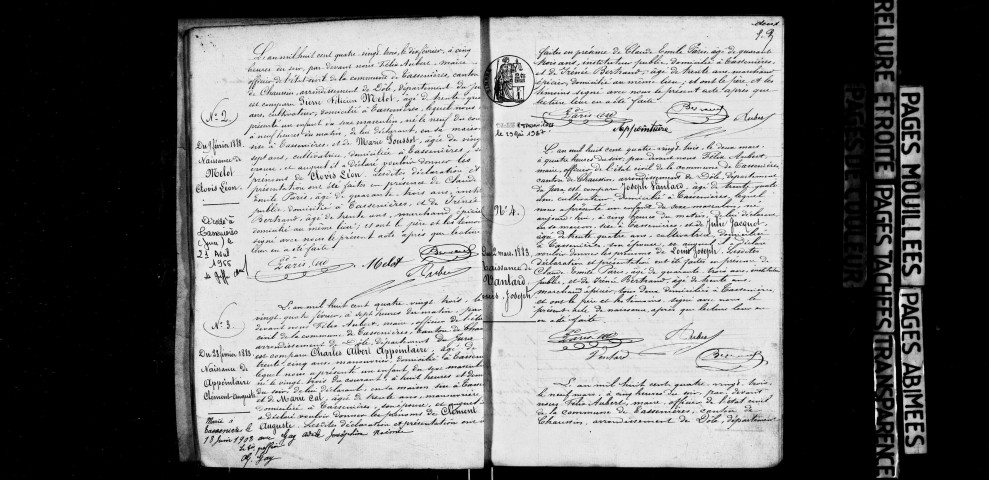 L'an mil huit cent quatre vingt trois, le dix février, à cinq
heures du soir, par devant nous Félix Aubert, maire
officier de l'état civil de la commune de Tassenières, canton
de Chaussin, arrondissement de Dôle, département du Jura
est comparu Pierre Félicien Melot, âgé de trente
ans, cultivateur, domicilié à Tassenières, lequel nous a
présenté un enfant du sexe masculin, né le neuf du
à neuf heures du matin, de lui déclarant, en sa maison
sise à Tassenières, et de Marie Joussot, âgée de vingt
sept ans, cultivatrice, domiciliée à Tassenières, son
épouse, et auquel il a déclaré vouloir donner les
prénoms de Clovis Léon. Lesdites déclaration et
présentation ont été faites en présence de Claude
Emile Paris, âgé de quarante trois ans, instituteur
public, domicilié à Tassenières, et de Irénée
Bertrant, âgé de trente ans, marchand épicier
domicilié au même lieu; et ont le père et les témoins
signé avec nous le présent acte après que lecture
leur en a été faite
Paris
Melot
Aubert
N° 2
Naissance de
Melot
Clovis Léon
Décédé à
Tassenières
(Jura) le
2 Août
1955
N° 3
Du 23 février 1883
Naissance de
Appointaire
Clément-Auguste
Marié à
Tassenières le
13 Juin 1908 avec Gay Adèle Joséphine
L'an mil huit cent quatre vingt trois, le
vingt quatre février, à sept heures du matin, par
devant nous Félix Aubert, maire, officier de l'état
civil de la commune de Tassenières, canton de Chaussin
arrondissement de Dôle, département du Jura
est comparu Charles Albert Appointaire, âgé de
trente cinq ans, manouvrier, domicilié à Tassenières
lequel nous a présenté un enfant du sexe masculin
né le vingt trois du courant, à huit heures et demie
du soir, de lui déclarant, en sa maison sise à Tassenières
et de Marie Cal, âgée de trente ans, manouvrière
domiciliée à Tassenières, son épouse, et auquel il
a déclaré vouloir donner les prénoms de Clément
Auguste. Lesdites déclaration et présentation ont été
faites en présence de Claude Emile Paris, âgé de quarante
trois ans, instituteur public, domicilié à Tassenières,
et de Irénée Bertrant, âgé de trente ans, marchand
épicier, domicilié au même lieu; et ont le père et les
témoins signé avec nous le présent acte après que
lecture leur en a été faite
Paris
Aubert
Appointaire
N° 4.
Du 2 mars 1883
Naissance de
Vantard
Louis Joseph
L'an mil huit cent quatre vingt trois, le deux mars,
à quatre heures du soir, par devant nous Félix Aubert,
maire, officier de l'état civil de la commune de Tassenières
canton de Chaussin, arrondissement de Dôle, département
du Jura est comparu Joseph Vantard, âgé de trente quatre
ans, cultivateur, domicilié à Tassenières, lequel
nous a présenté un enfant du sexe masculin, né
aujourd'hui, à cinq heures du matin, de lui déclarant,
en sa maison sise à Tassenières, et de Julie Jacquot,
âgée de trente quatre ans, cultivatrice, domiciliée
à Tassenières, son épouse, et auquel il a déclaré
vouloir donner les prénoms de Louis Joseph. Lesdites
déclaration et présentation ont été faites en présence de
Claude Emile Paris, âgé de quarante trois ans, instituteur
public, et de Irénée Bertrant, âgé de trente ans,
marchand épicier, tous deux domiciliés à Tassenières,
et ont le père et les témoins signé avec nous le
présent acte de naissance, après que lecture leur en
a été faite
Paris
Aubert
Vantard
L'an mil huit cent quatre vingt trois,
le neuf mars, à cinq heures du soir, par devant
nous Félix Aubert, maire, officier de l'état civil
de la commune de Tassenières, canton de
Chaussin, arrondissement de Dôle, département
RELIURE ETROITE
PAGES TACHEES
TRANSPARENCE
PAGES MOUILLEES
PAGES ABIMEES
PAGE DE COULEUR